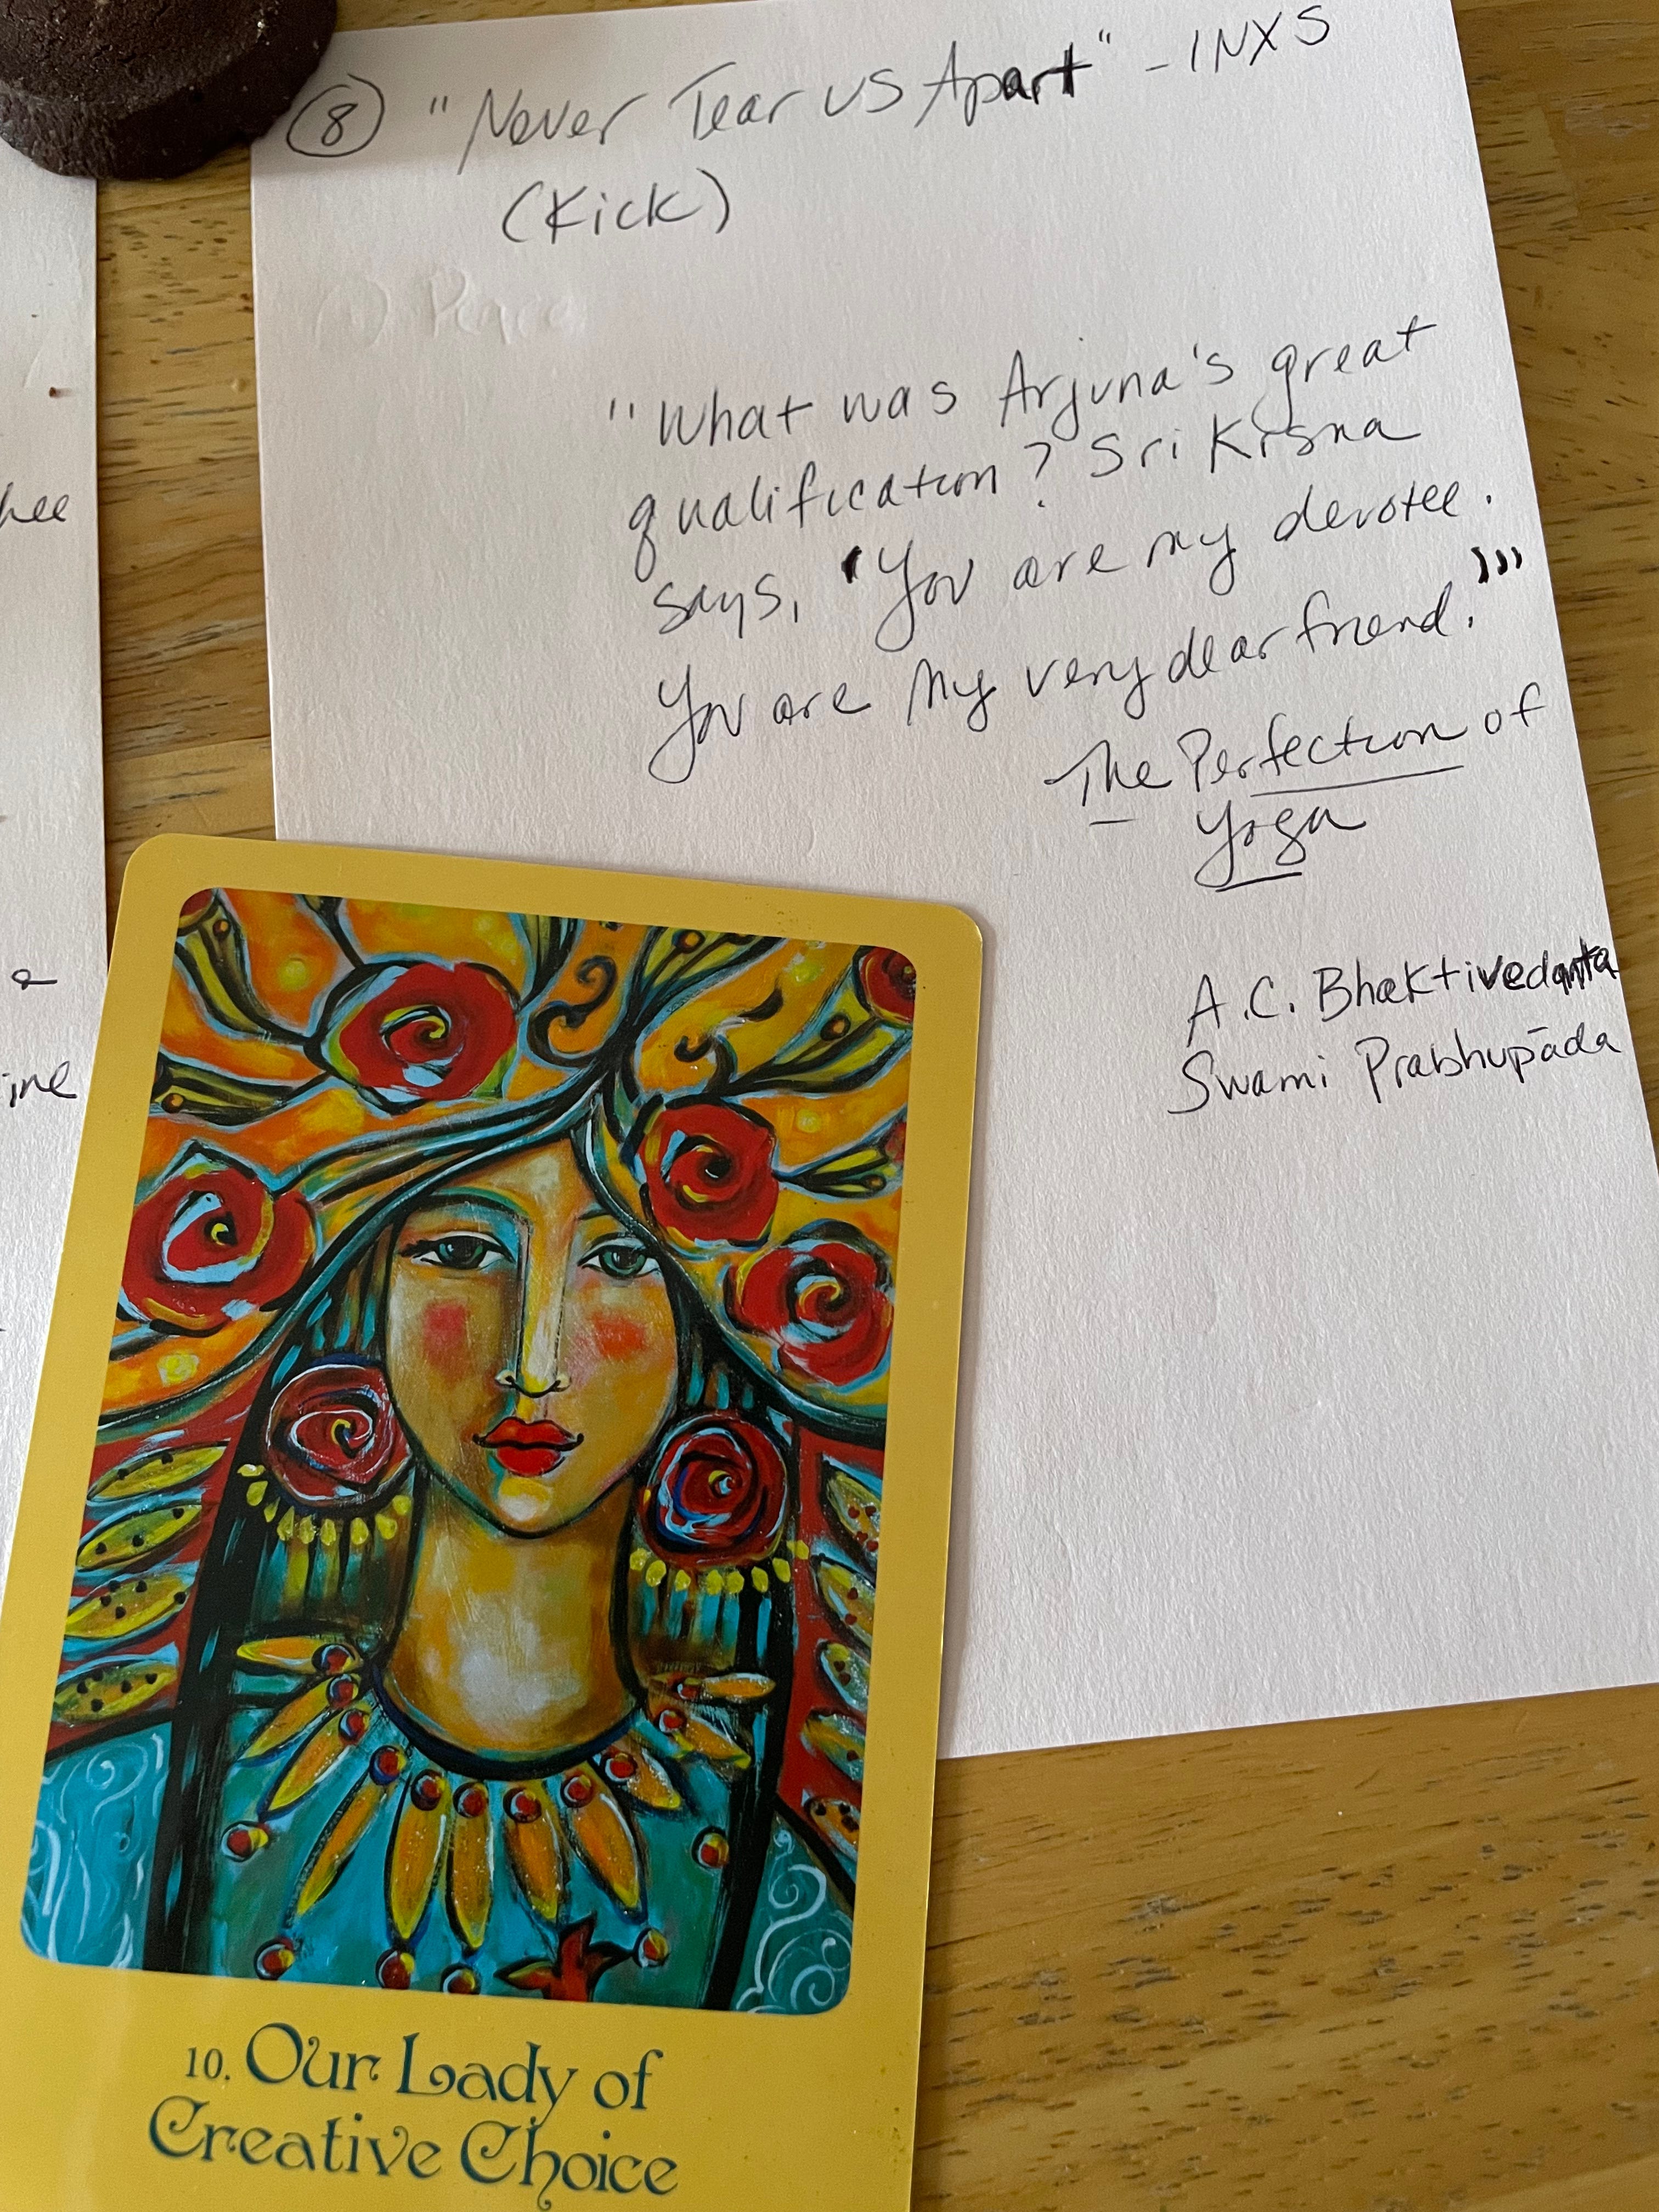 ⑧ "Never Tear us Apart" - INXS
(Kick)
"What was Arjuna's great
qualification? Sri Krsna
says, 'You are my devotee.
You are My very dear friend.'"
The Perfection of
Yoga
A.C. Bhaktivedanta
Swami Prabhupāda
10. Our Lady of
Creative Choice